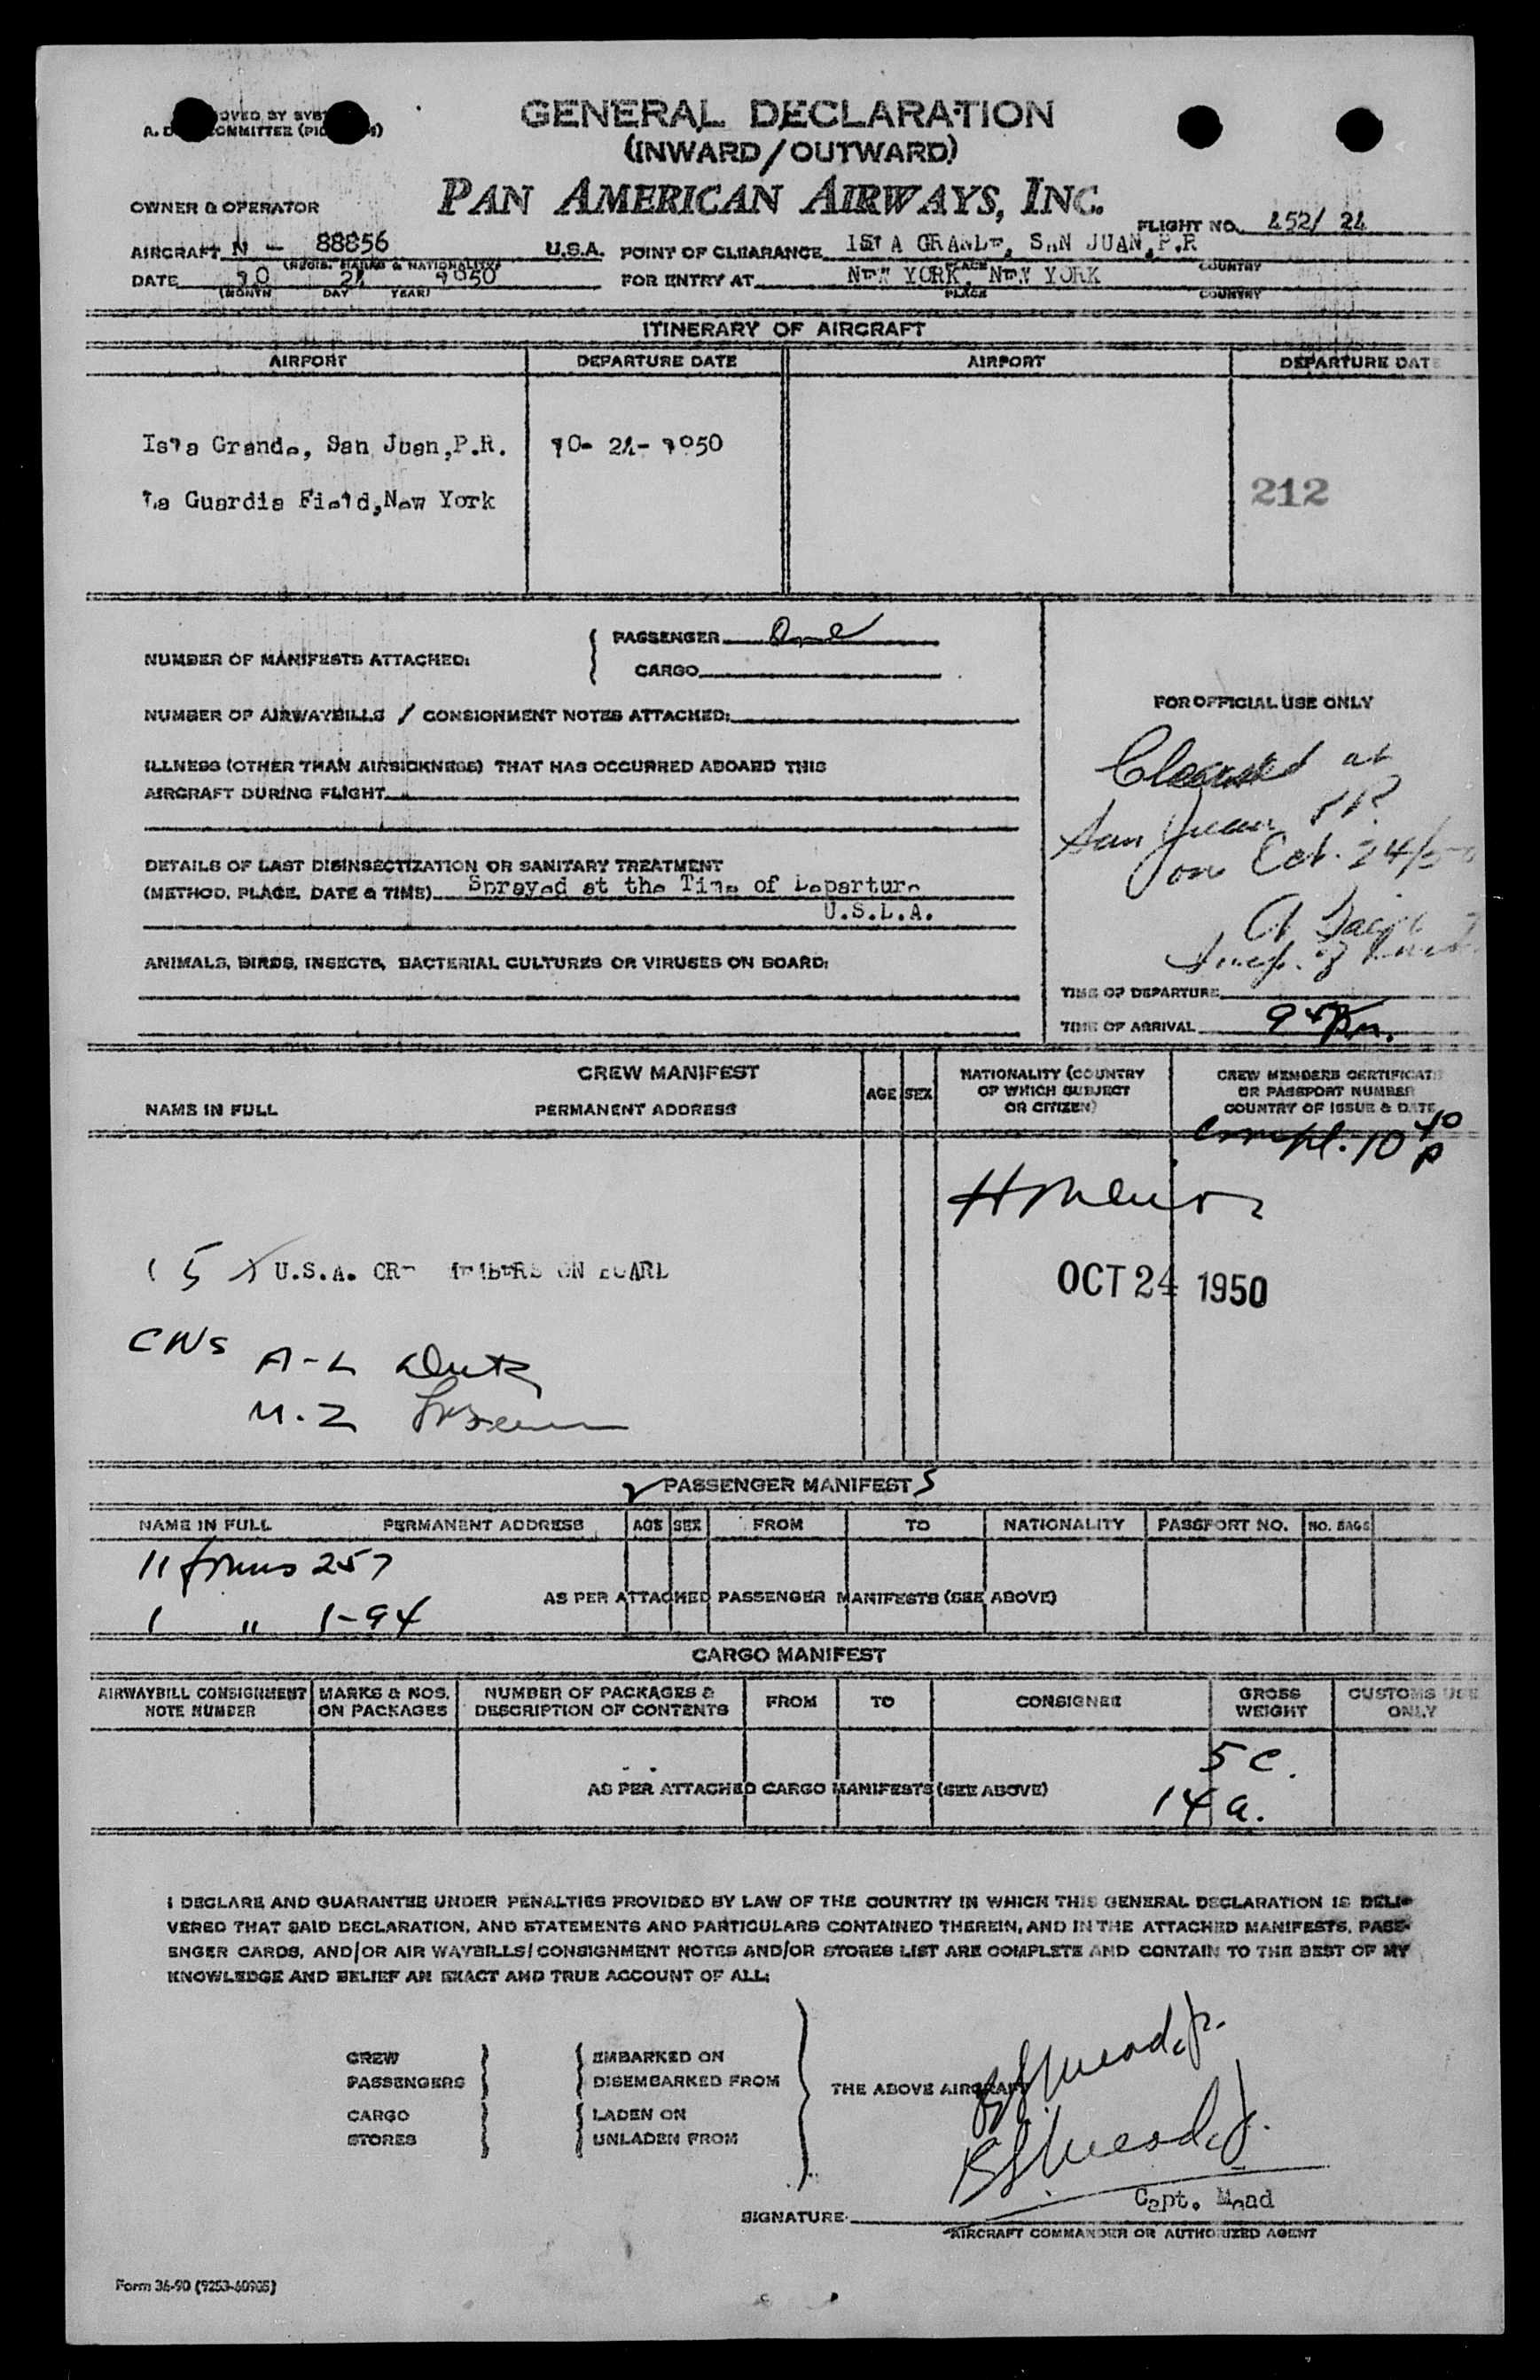 GENERAL DECLARATION
(INWARD/OUTWARD)
PAN AMERICAN AIRWAYS, INC.
OWNER & OPERATOR
FLIGHT NO. 452/ 24
AIRCRAFT N - 88856 U.S.A. POINT OF CLEARANCE ISLA GRANDE, SAN JUAN, P.R
(REGIS. MARKS & NATIONALITY) PLACE COUNTRY
DATE 10 24 1950 FOR ENTRY AT NEW YORK, NEW YORK
(MONTH DAY YEAR) PLACE COUNTRY
ITINERARY OF AIRCRAFT
AIRPORT DEPARTURE DATE AIRPORT DEPARTURE DATE
Isla Grande, San Juan, P.R. 10- 24- 1950
La Guardia Field, New York
212
NUMBER OF MANIFESTS ATTACHED: PASSENGER One
CARGO
FOR OFFICIAL USE ONLY
NUMBER OF AIRWAYBILLS / CONSIGNMENT NOTES ATTACHED:
Cleared at
San Juan P.R.
on Oct. 24/50
ILLNESS (OTHER THAN AIRSICKNESS) THAT HAS OCCURRED ABOARD THIS
AIRCRAFT DURING FLIGHT
DETAILS OF LAST DISINSECTIZATION OR SANITARY TREATMENT
(METHOD, PLACE, DATE & TIME) Sprayed at the Time of Departure
U.S.D.A.
Insp. of
ANIMALS, BIRDS, INSECTS, BACTERIAL CULTURES OR VIRUSES ON BOARD:
TIME OF DEPARTURE
TIME OF ARRIVAL
CREW MANIFEST
NAME IN FULL PERMANENT ADDRESS AGE SEX NATIONALITY (COUNTRY OF WHICH SUBJECT OR CITIZEN) CREW MEMBERS CERTIFICATE OR PASSPORT NUMBER COUNTRY OF ISSUE & DATE
Compl. 10 40 P
5 U.S.A. CREW MEMBERS ON BOARD
OCT 24 1950
CNS A-L
M-Z
PASSENGER MANIFEST S
NAME IN FULL PERMANENT ADDRESS AGE SEX FROM TO NATIONALITY PASSPORT NO. NO. BAGS
11 forms 257
AS PER ATTACHED PASSENGER MANIFESTS (SEE ABOVE)
1 " 1-94
CARGO MANIFEST
AIRWAYBILL CONSIGNMENT NOTE NUMBER MARKS & NOS. ON PACKAGES NUMBER OF PACKAGES & DESCRIPTION OF CONTENTS FROM TO CONSIGNEE GROSS WEIGHT CUSTOMS USE ONLY
5 C.
AS PER ATTACHED CARGO MANIFESTS (SEE ABOVE)
14 a.
I DECLARE AND GUARANTEE UNDER PENALTIES PROVIDED BY LAW OF THE COUNTRY IN WHICH THIS GENERAL DECLARATION IS DELI-
VERED THAT SAID DECLARATION, AND STATEMENTS AND PARTICULARS CONTAINED THEREIN, AND IN THE ATTACHED MANIFESTS, PASS-
ENGER CARDS, AND/OR AIR WAYBILLS/CONSIGNMENT NOTES AND/OR STORES LIST ARE COMPLETE AND CONTAIN TO THE BEST OF MY
KNOWLEDGE AND BELIEF AN EXACT AND TRUE ACCOUNT OF ALL:
CREW EMBARKED ON
PASSENGERS DISEMBARKED FROM THE ABOVE AIRCRAFT
CARGO LADEN ON
STORES UNLADEN FROM
Capt. Mead
SIGNATURE
AIRCRAFT COMMANDER OR AUTHORIZED AGENT
Form 36-90 (9253-60905)